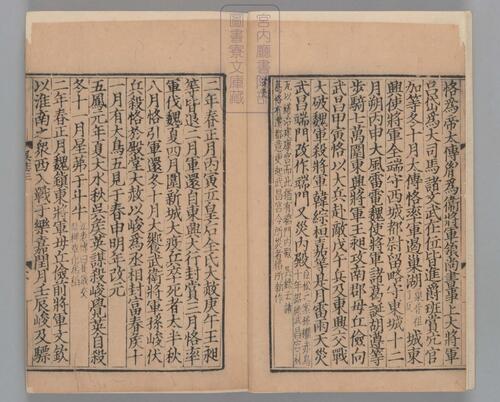 恪爲帝太傅胤爲衛將軍領尚書事上大將軍
呂岱爲大司馬諸文武在位皆進爵班賞宂官
加等冬十月太傅恪率軍遏巢湖城東
興使將軍全端守西城都尉留略守東城十二
月朔丙申大風雷電魏使將軍諸葛誕胡遵等
步騎七萬圍東興將軍王昶攻南郡毌丘儉向
武昌甲寅恪以大兵赴敵戊午兵及東興交戰
大破魏軍殺將軍韓綜桓嘉等是月雷雨天災
武昌端門改作端門又災内殿
二年春正月丙寅立皇后全氏大赦庚午王昶
等皆退二月軍還自東興大行封賞三月恪率
軍伐魏夏四月圍新城大疫兵卒死者大半秋
八月恪引軍還冬十月大饗武衛將軍孫峻伏
兵殺恪於殿堂大赦以峻爲丞相封富春矦十
一月有大鳥五見于春申明年改元
五鳳元年夏大水秋吳矦英謀殺峻覺英自殺
冬十一月星茀于斗牛
二年春正月魏鎭東將軍毌丘儉前將軍文欽
以淮南之衆西入戰于樂嘉閏月壬辰峻及驃
宮内廳書陵部
圖書寮文庫藏